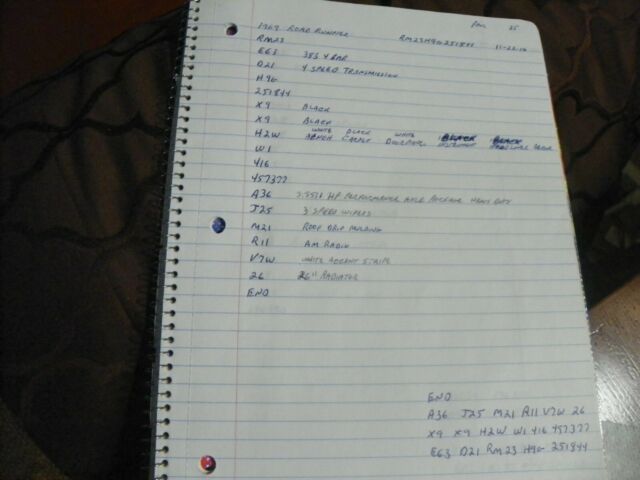 25
1969 ROAD RUNNER RM23H9G251844
RM23
E63 383 4 BAR
D21 4 SPEED TRANSMISSION
H9G
251844
X9 BLACK
X9 BLACK
H2W WHITE BLACK WHITE BLACK BLACK
CARPET
W1
416
457377
A36 HP PERFORMANCE AXLE PACKAGE
J25 3 SPEED WIPERS
M21 ROOF DRIP MOLDING
R11 AM RADIO
V7W WHITE ACCENT STRIPE
26 26" RADIATOR
END
END
A36 J25 M21 R11 V7W 26
X9 X9 H2W W1 416 457377
E63 D21 RM23 H9G 251844